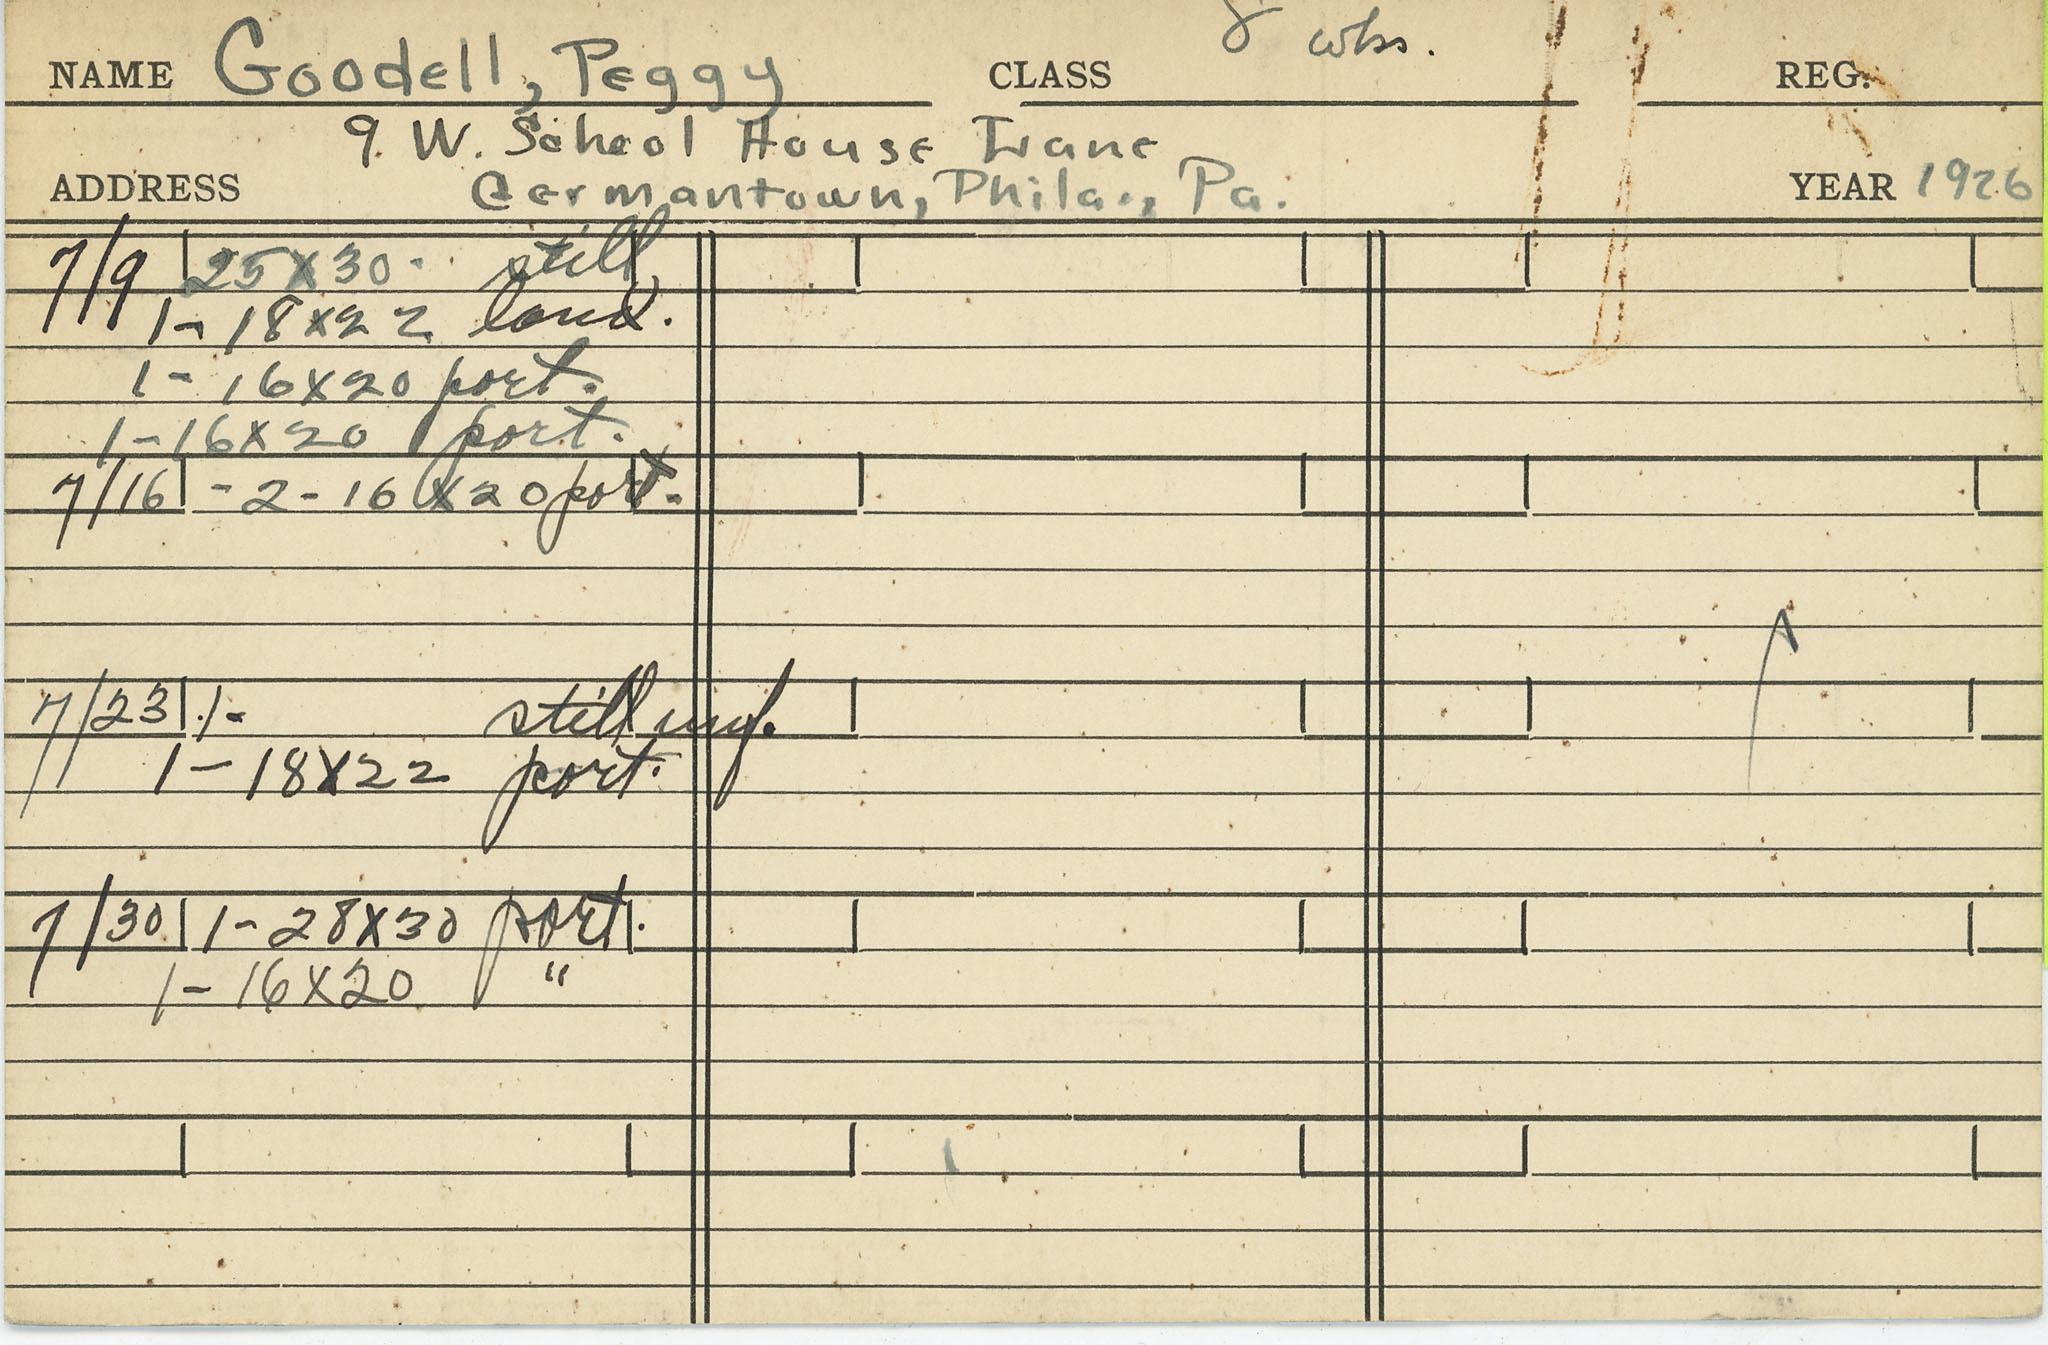 8 wks.
NAME Goodell, Peggy CLASS REG.
9 W. School House Lane
ADDRESS Germantown, Phila., Pa. YEAR 1926
7/9 25X30 - still
1- 18X22 land.
1- 16X20 port.
1-16X20 port.
7/16 - 2 - 16X20 port.
7/23 1- still unf.
1-18X22 port.
7/30 1-28X30 port.
1-16X20 "